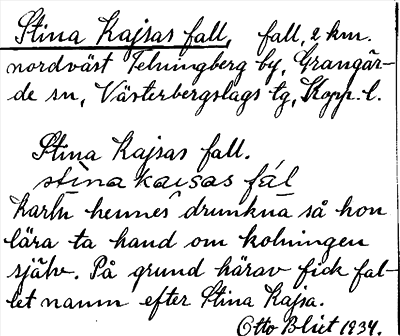 Stina Kajsas fall, fall, 2 km.
nordväst Telningberg by, Grangär-
de sn, Västerbergslags tg, Kopp. l.
Stina Kajsas fall.
stìna kaisas fál
Karln hennes drunkna så hon
lära ta hand om kolningen
själv. På grund härav fick fal-
let namn efter Stina Kajsa.
Otto Blixt 1934.